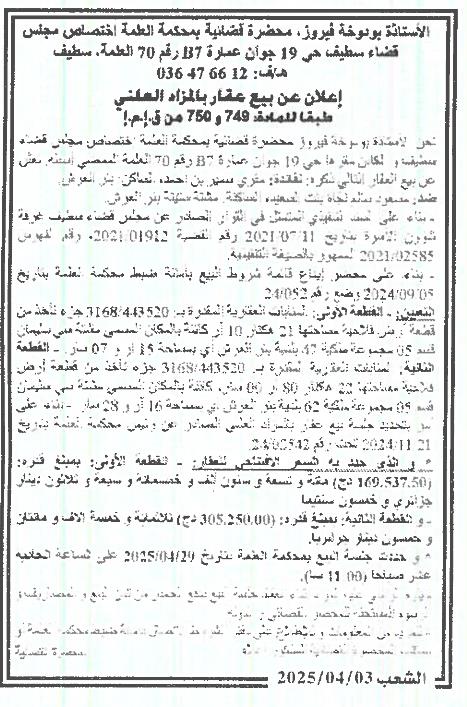 الأستاذة بودوخة فيروز، محضرة قضائية بمحكمة العلمة اختصاص مجلس
قضاء سطيف حي 19 جوان عمارة B7 رقم 70 العلمة، سطيف
هاتف: 12 66 47 036
إعلان عن بيع عقار بالمزاد العلني
طبقا للمادة: 749 و 750 من ق.إ.م.إ
نحن الأستاذة بودوخة فيروز محضرة قضائية بمحكمة العلمة اختصاص مجلس قضاء
سطيف و الكائن مقرها حي 19 جوان عمارة B7 رقم 70 العلمة الممضي أسفله، نعلن
عن بيع العقار التالي ذكره: لفائدة: بن أحمد، الساكن: بئر العرش
ضد: الساكنة، مشتة بئر العرش.
- بناء على السند التنفيذي المتمثل في القرار الصادر عن مجلس قضاء سطيف غرفة
شؤون الأسرة بتاريخ 2021/07/11 رقم القضية 2021/01912، رقم الفهرس
2021/02585 الممهور بالصيغة التنفيذية.
- بناء على محضر إيداع قائمة شروط البيع بأمانة ضبط محكمة العلمة بتاريخ
2024/09/05 وضع رقم 24/052
التعيين: - القطعة الأولى: لمنابات العقارية المقدرة بـ 3168/443520 جزء تأخذ من
قطعة أرض فلاحية مساحتها 21 هكتار 10 آر كائنة بالمكان المسمى مشتة بني سليمان
قسم 05 مجموعة ملكية 47 بلدية بئر العرش أي بمساحة 15 آر و 07 سآر. - القطعة
الثانية: المنابات العقارية المقدرة بـ 3168/443520 جزء تأخذ من قطعة أرض
فلاحية مساحتها 22 هكتار 80 آر 00 سآر، كائنة بالمكان المسمى مشتة بني سليمان
قسم 05 مجموعة ملكية 62 بلدية بئر العرش أي بمساحة 16 آر و 28 سآر. - بناء على
أمر بتحديد جلسة بيع عقار بالمزاد العلني الصادر عن رئيس محكمة العلمة بتاريخ
2024/11/21 تحت رقم 24/02542
- و الذي حدد به السعر الافتتاحي للعقار: - القطعة الأولى: بمبلغ قدره:
(169.537.50 دج) مئة و تسعة و ستون ألف و خمسمائة و سبعة و ثلاثون دينار
جزائري و خمسون سنتيما
- و القطعة الثانية: بمبلغ قدره: (305.250.00 دج) ثلاثمائة و خمسة آلاف و مئتان
و خمسون دينار جزائريا.
* و حددت جلسة البيع بمحكمة العلمة بتاريخ 2025/04/29 على الساعة الحادية
عشر صباحا (11:00 سا).
الشعب 2025/04/03